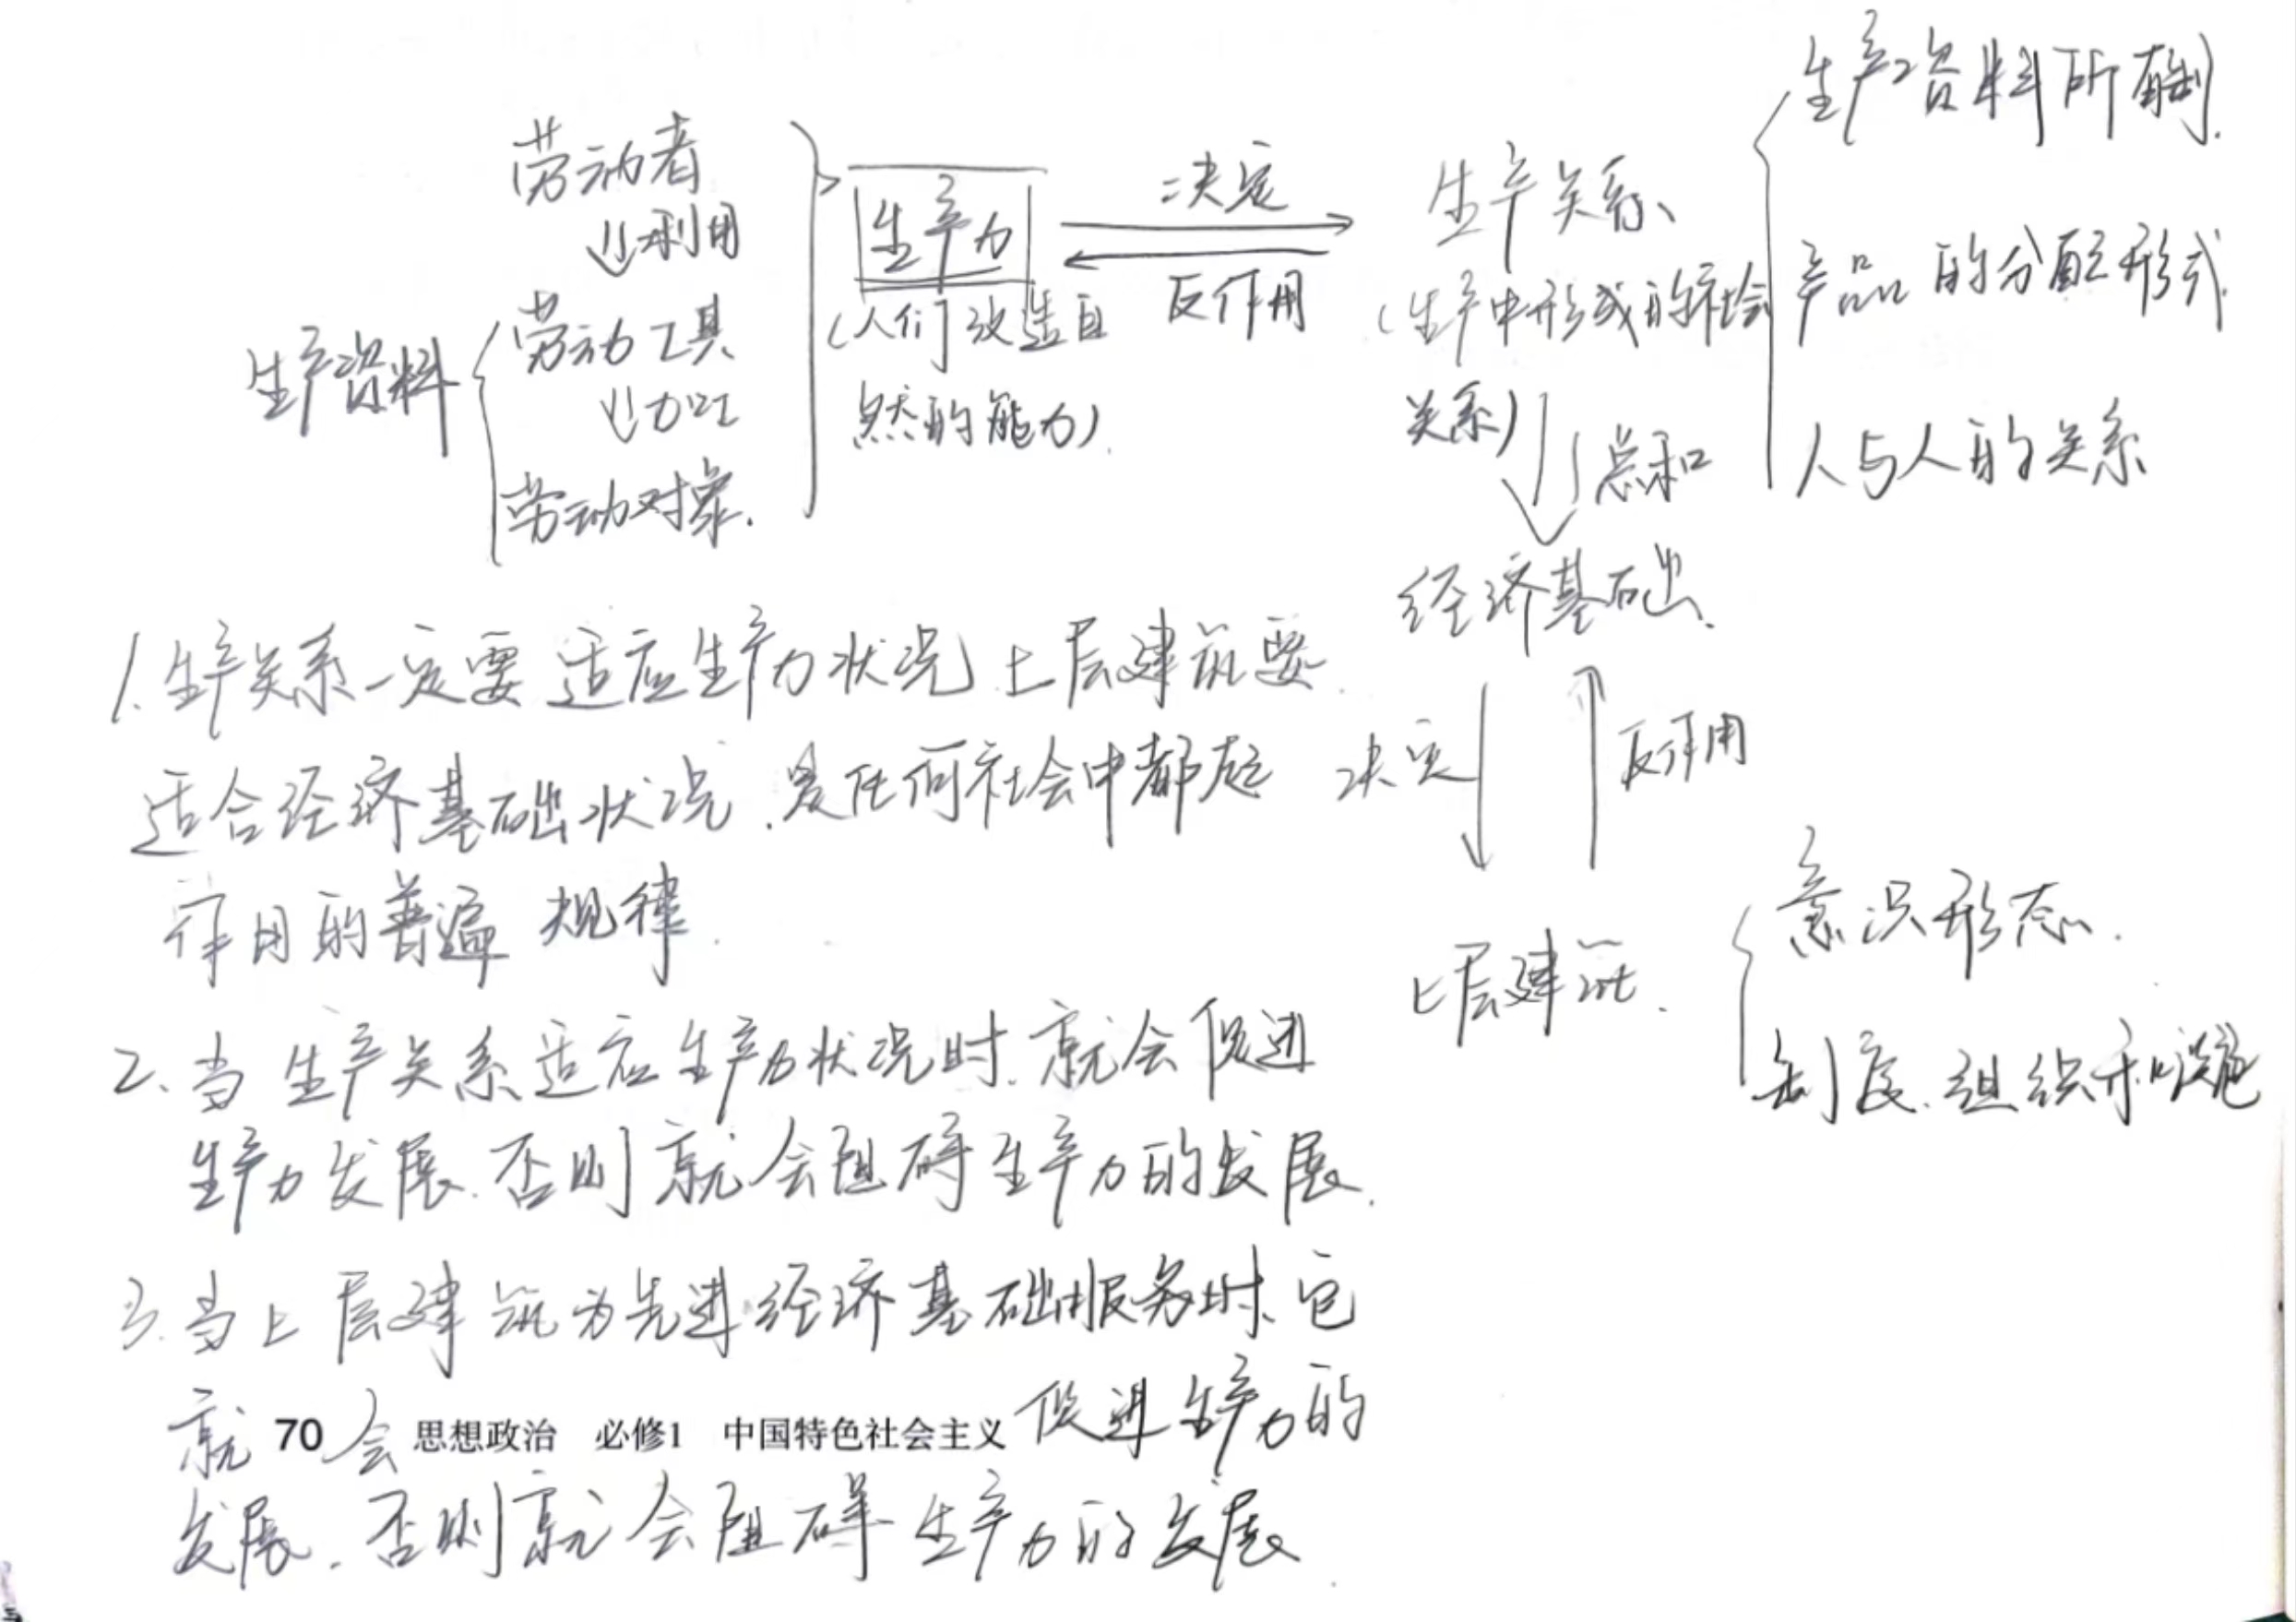 劳动者
↓利用
生产资料
劳动工具
↓加工
劳动对象.
生产力
(人们改造自
然的能力).
决定
反作用
生产关系、
(生产中形成的社会
关系)
生产资料所有制.
产品的分配形式.
人与人的关系
总和
经济基础.
决定
反作用
上层建筑.
意识形态.
制度.组织和设施
1.生产关系一定要适应生产力状况 上层建筑要
适合经济基础状况.是任何社会中都起
作用的普遍规律.
2、当生产关系适应生产力状况时.就会促进
生产力发展.否则就会阻碍生产力的发展.
3.当上层建筑为先进经济基础服务时、它
就会促进生产力的
70 思想政治 必修1 中国特色社会主义
发展.否则就会阻碍生产力的发展.